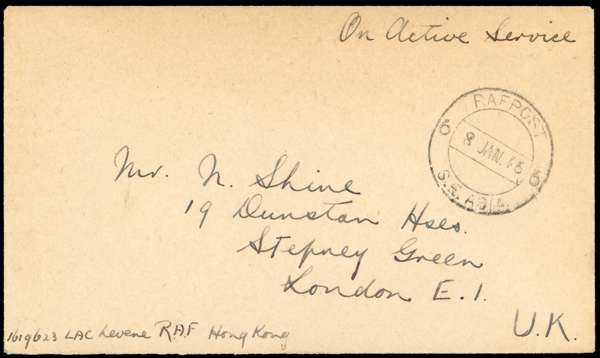 On Active Service
RAFPOST
6 6
8 JAN. 46
S.E. ASIA.
Mr. N. Shine
19 Dunstan Hses.
Stepney Green
London E.1.
U.K.
1619623 LAC Levene RAF Hong Kong